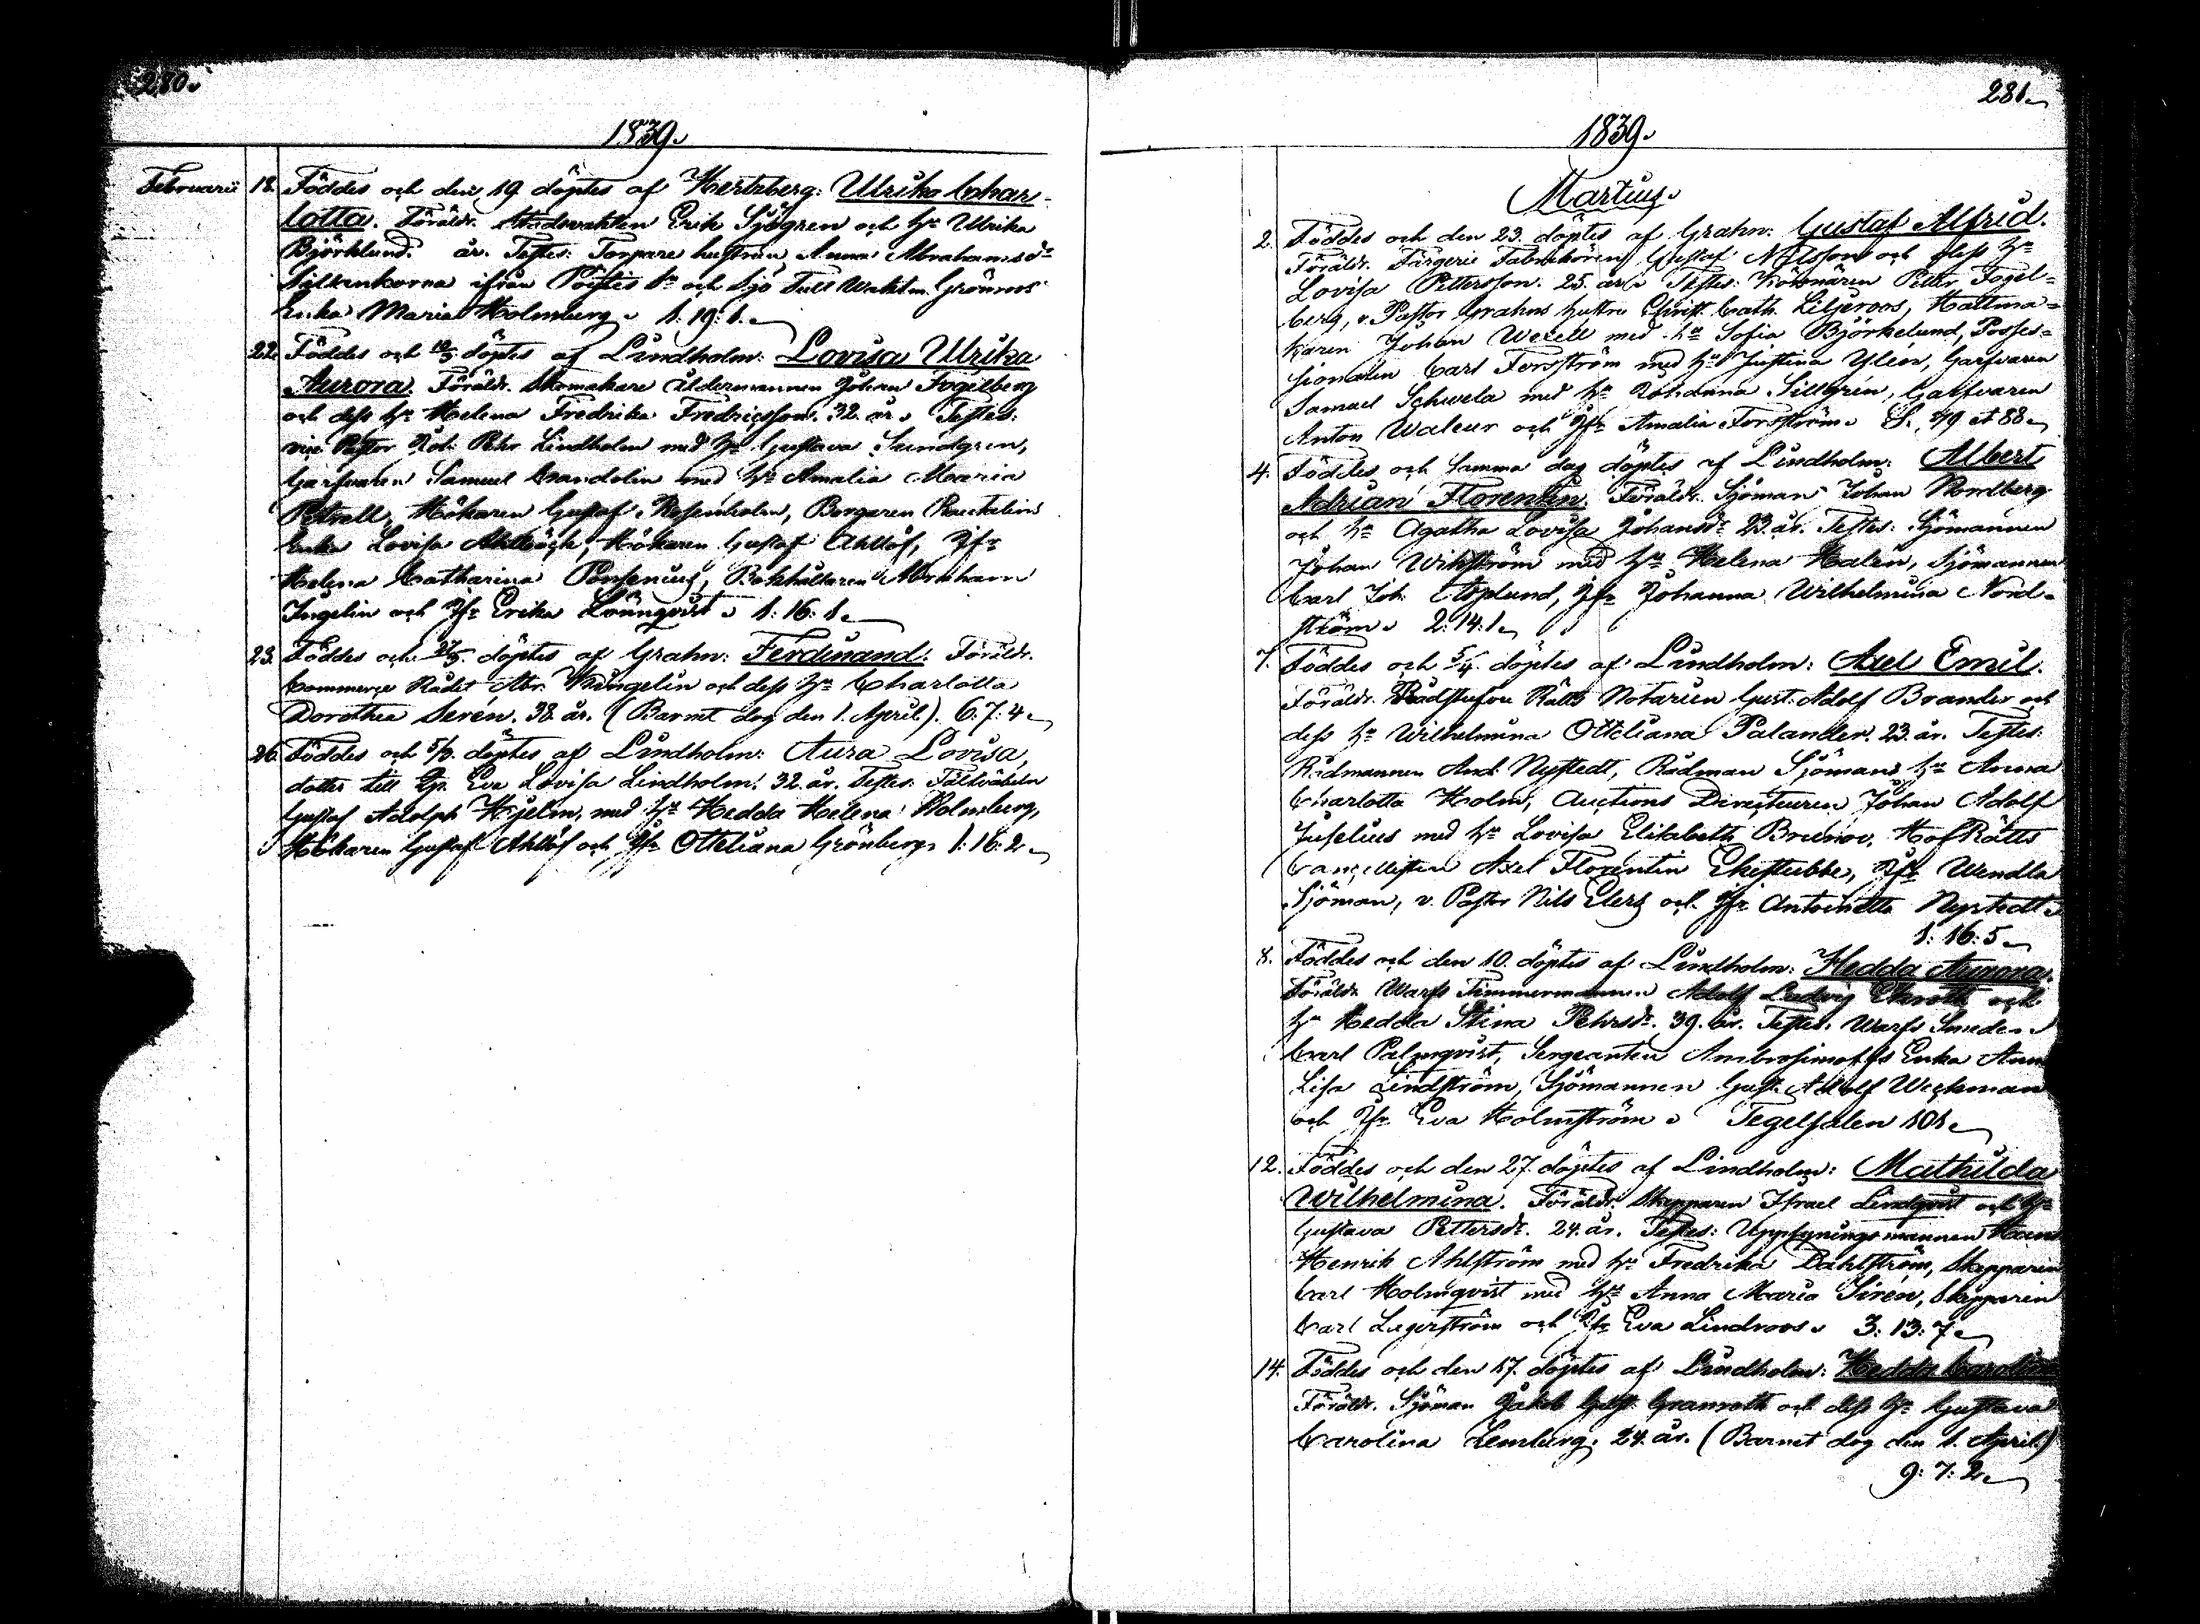 280.
1839.
Februarii 18. Föddes och den 19. döptes af Hertzberg: Ulrika Char-
lotta. Föräldr. Stadsvakten Erik Sjögren och h:u Ulrika
Björklund. år. Testes: Torpare hustrun Anna Abrahamsd:r
ifrån och Sjö Tull Waktm. Grönroos
Enka Maria Holmberg. 1:19:1.
22. Föddes och 10/3 döptes af Lindholm: Lovisa Ulrika
Aurora. Föräldr. Skomakare åldermannen Johan Fogelberg
och dess h:u Helena Fredrika Fredricsson. 32 år. Testes:
vice Pastor Joh: Pehr Lindholm med h:u Gustava Sundgren,
Garfvaren Samuel Crandelin med h:u Amalia Maria
Petrell, Hökaren Gustaf Rosenholm, Borgaren
Enka Lovisa Ahlbäck, Hökaren Gustaf Ahllöf, Jfr
Helena Catharina Ponsenius, Bokhållaren Abraham
Ingelin och Jfr Erika Lönnqvist. 1:16:1.
23. Föddes och 27/3. döptes af Grahn: Ferdinand. Föräldr.
Commerce Rådet Abr. Kingelin och dess h:u Charlotta
Dorothea Serén. 38 år. (Barnet dog den 1. April). 6:7:4.
26. Föddes och 5/3. döptes af Lindholm: Aura Lovisa,
dotter till Eva Lovisa Lindholm. 32 år. Testes: Fältväbeln
Gustaf Adolph Hjelm, med h:u Hedda Helena Holmberg,
Hökaren Gustaf Ahllöf och Jfr Otteliana Grönberg. 1:16:2.
281.
1839.
Martius.
2. Föddes och den 23. döptes af Grahn: Gustaf Alfrid.
Föräldr. Färgeri Fabrikören Gustaf Nilsson och dess h:u
Lovisa Pettersson. 25 år. Testes: Körsnären Petter Fogel-
berg, v. Pastor Grahns hustru Christ. Cath. Liljeroos, Hattma-
karen Johan Wexell med h:u Sofia Björkelund, Posses-
sionaten Carl Forsström med h:u Justina Ylén, Garfvaren
Samuel Schwela med h:u Johanna Sillgrén, Garfvaren
Anton Waleur och Jfr Amalia Forsström. S. 49 et 88.
4. Föddes och samma dag döptes af Lindholm: Albert
Adrian Florentin. Föräldr. Sjöman Johan Nordberg
och h:u Agatha Lovisa Johansd:r 23 år. Testes: Sjömannen
Johan Wikström med h:u Helena Halén, Sjömannen
Carl Joh: Asplund, Jfr Johanna Wilhelmina Nord-
ström. 2:14:1.
7. Föddes och 5/4. döptes af Lindholm: Axel Emil.
Föräldr. Rådstufvu Rätts Notarien Gust. Adolf Brander och
dess h:u Wilhelmina Otteliana Palander. 23 år. Testes:
Rådmannen And. Nystedt, Rådman Sjömans h:u Anna
Charlotta Holm, Auctions Directeuren Johan Adolf
Juselius med h:u Lovisa Elisabeth Brunov, Hof Rätts
Cancellisten Axel Florentin Ekestubbe, Jfr Wendla
Sjöman, v. Pastor Nils Elers och Jfr Antoinetta Nystedt.
1:16:5.
8. Föddes och den 10. döptes af Lindholm: Hedda Aurora.
Föräldr. Warfs Timmermannen Adolf Ludvig Ekroth och
h:u Hedda Stina Pehrsd:r. 39. år. Testes: Warfs Smeden
Carl Palmqvist, Sergeanten Ambrosimoffs Enka Anna
Lisa Lindström, Sjömannen Gust. Adolf Weckman
och Jfr Eva Holmström. Tegelsalen 101.
12. Föddes och den 27. döptes af Lindholm: Mathilda
Wilhelmina. Föräldr. Skepparen Israel Lindqvist och h:u
Gustava Pettersd:r. 24. år. Testes: Uppsyningsmannen Hans
Henrik Ahlström med h:u Fredrika Dahlström, Skepparen
Carl Holmqvist med h:u Anna Maria Sirén, Skepparen
Carl Lagerström och Jfr Eva Lindroos. 3:13:7.
14. Föddes och den 17. döptes af Lindholm: Hedda Carolina
Föräldr. Sjöman Jakob Gust. Granroth och dess h:u Gustava
Carolina Lemberg. 24. år. (Barnet dog den 1. April.)
9:7:2.